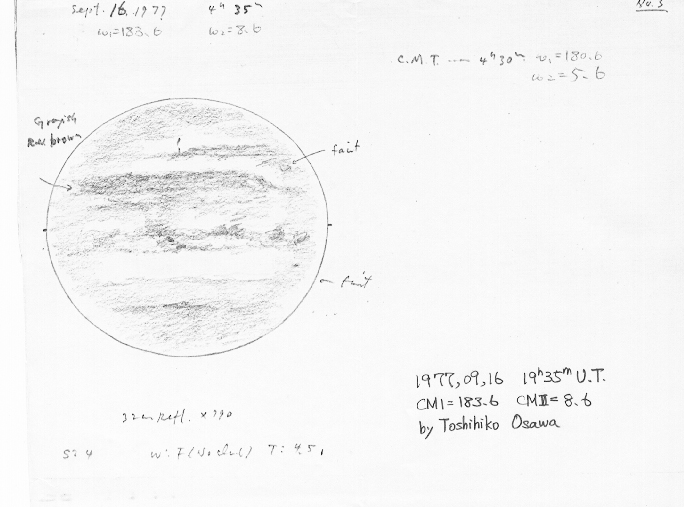 No. 3
Sept. 16. 1977 4h 35m
ω1=183.6 ω2=8.6
C.M.T. --- 4h30m ω1=180.6
ω2=5.6
Grayish
brown
faint
faint
1977,09,16 19h35m U.T.
CMI=183.6 CMII=8.6
by Toshihiko Osawa
Refl.
S: 4 T: 4.5,